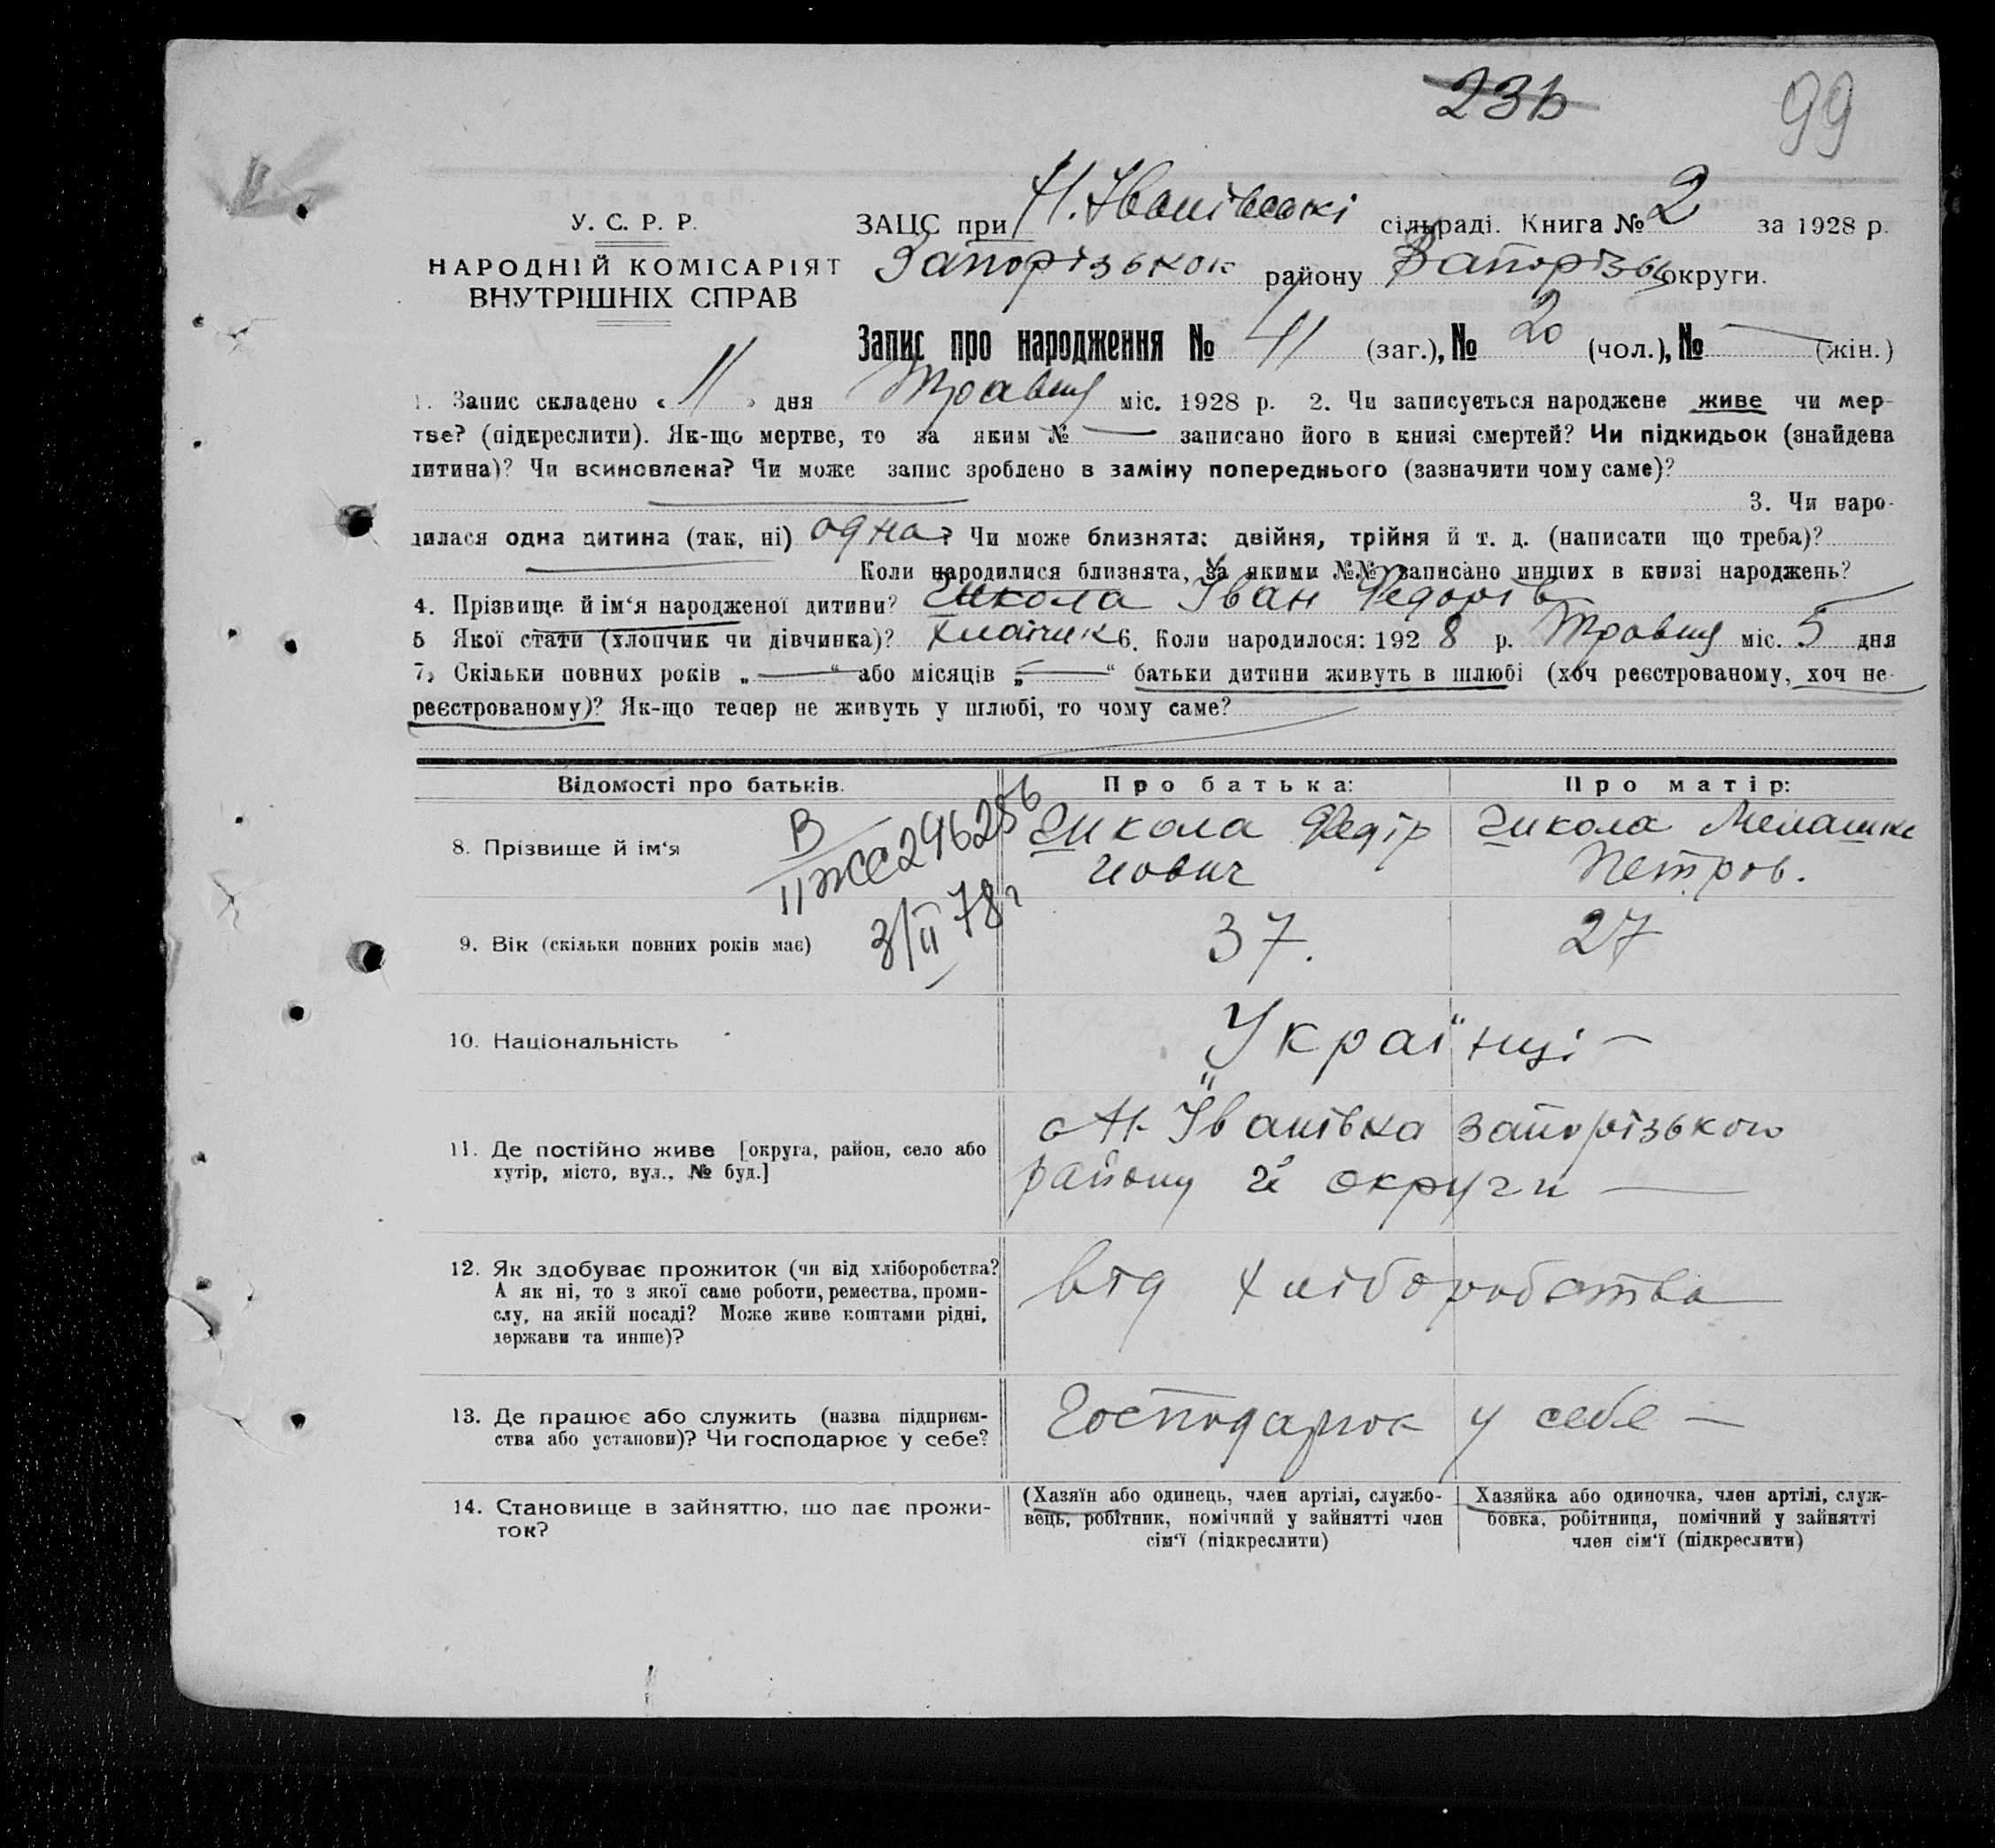 23b
99
У. С. Р. Р.
НАРОДНІЙ КОМІСАРІЯТ
ВНУТРІШНІХ СПРАВ
ЗАЦС при Н. Іванівські сільраді. Книга № 2 за 1928 р.
Запорізьког району Запорізьк округи.
Запис про народження № 41 (заг.), № 20 (чол.), № — (жін.)
1. Запис складено « 11 » дня Травня міс. 1928 р. 2. Чи записується народжене живе чи мер-
тве? (підкреслити). Як-що мертве, то за яким № — записано його в книзі смертей? Чи підкидьок (знайдена
дитина)? Чи всиновлена? Чи може запис зроблено в заміну попереднього (зазначити чому саме)?
3. Чи наро-
дилася одна дитина (так, ні) одна? Чи може близнята: двійня, трійня й т. д. (написати що треба)?
Коли народилися близнята, за якими №№ записано инших в книзі народжень?
4. Прізвище й ім‘я народженої дитини? Школа Іван Федорів
5 Якої стати (хлопчик чи дівчинка)? хлопчик 6. Коли народилося: 192 8 р. Травня міс. 5 дня
7, Скільки повних років „ — “ або місяців „ — “ батьки дитини живуть в шлюбі (хоч реєстрованому, хоч не-
реєстрованому)? Як-що тепер не живуть у шлюбі, то чому саме?
Відомості про батьків.
Про батька:
Про матір:
8. Прізвище й ім‘я
В
II ЖС 296256
3/II 78г
Школа Федір
Школа Мелашка
Петров.
9. Вік (скільки повних років має)
37.
27
10. Національність
Українці —
11. Де постійно живе [округа, район, село або
хутір, місто, вул., № буд.]
с Н. Іванівка Запорізького
району й округи —
12. Як здобуває прожиток (чи від хліборобства?
А як ні, то з якої саме роботи, ремества, проми-
слу, на якій посаді? Може живе коштами рідні,
держави та инше)?
від хліборобства
13. Де працює або служить (назва підприєм-
ства або установи)? Чи господарює у себе?
Господарюють у себе —
14. Становище в зайняттю, що дає прожи-
ток?
(Хазяїн або одинець, член артілі, службо-
вець, робітник, помічний у зайнятті член
сім‘ї (підкреслити)
Хазяйка або одиночка, член артілі, служ-
бовка, робітниця, помічний у зайнятті
член сім‘ї (підкреслити)